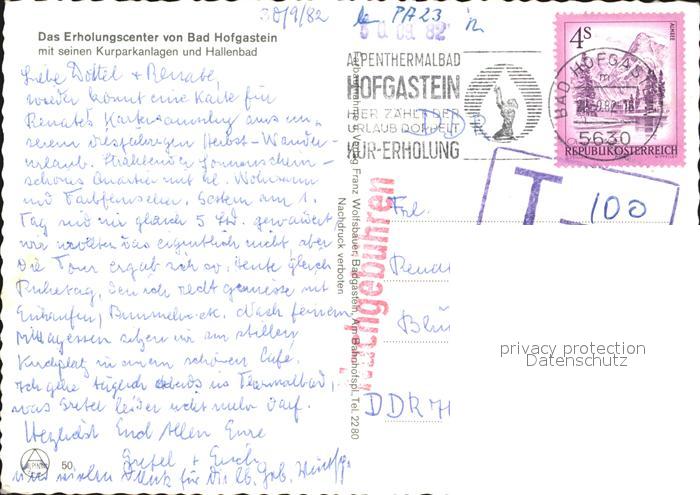 30/9/82
PA 23
30.09.82
Das Erholungscenter von Bad Hofgastein
mit seinen Kurparkanlagen und Hallenbad
Liebe Dottel + Renate,
wieder kommt eine Karte für
Renates Kartensammlung aus un-
serem diesjährigen Herbst-Wander-
urlaub. Strahlender Sonnenschein -
schönes Quartier mit kl. Wohnraum
und Farbfernseher. Gestern am 1.
Tag sind wir gleich 5 Std. gewandert,
wir wollten das eigentlich nicht aber
die Tour ergab sich so. Heute gleich
Ruhetag, den ich recht geniesse mit
Einkaufen/Bummeln. Nach feinem
Mittagessen sitzen wir am stillen
Kirchplatz in einem schönen Cafe.
Ich gehe täglich abends ins Thermalbad,
was Gretel leider nicht mehr darf.
Herzlichst Euch Allen Eure
Gretel +
und vielen Dank für die lb. Geb.
50,
ALPENTHERMALBAD
HOFGASTEIN
HIER ZÄHLT DER
URLAUB DOPPELT
KUR-ERHOLUNG
DDR
4S
BAD HOFGASTEIN
5630
REPUBLIK ÖSTERREICH
T
100
Nachgebühren
Verlag Franz Wolfsbauer, Badgastein, Am Bahnhofspl., Tel. 2280
Nachdruck verboten
Frl.
DDR
privacy protection
Datenschutz